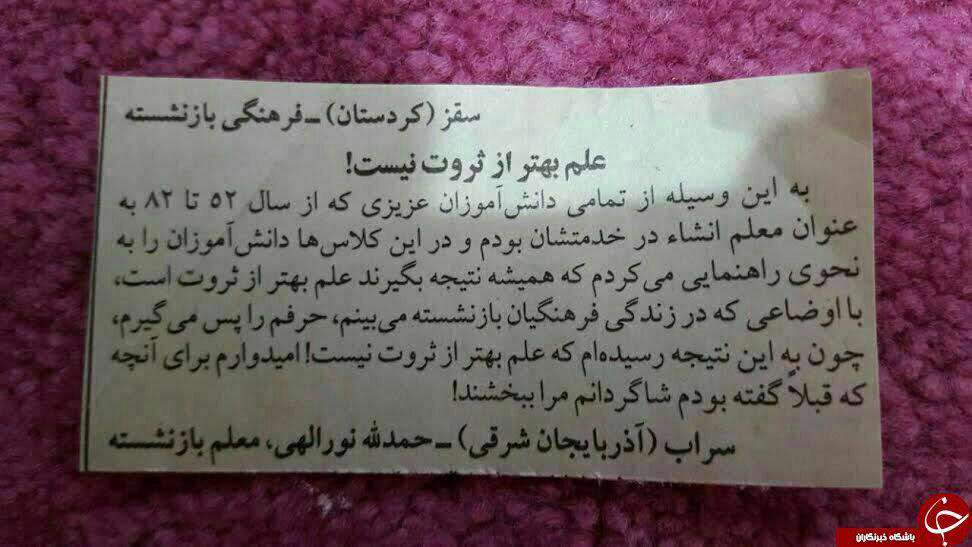 سقز (کردستان) ـ فرهنگی بازنشسته
علم بهتر از ثروت نیست!
به این وسیله از تمامی دانش‌آموزان عزیزی که از سال ۵۲ تا ۸۲ به
عنوان معلم انشاء در خدمتشان بودم و در این کلاس‌ها دانش‌آموزان را به
نحوی راهنمایی می‌کردم که همیشه نتیجه بگیرند علم بهتر از ثروت است،
با اوضاعی که در زندگی فرهنگیان بازنشسته می‌بینم، حرفم را پس می‌گیرم،
چون به این نتیجه رسیده‌ام که علم بهتر از ثروت نیست! امیدوارم برای آنچه
که قبلاً گفته بودم شاگردانم مرا ببخشند!
سراب (آذربایجان شرقی) ـ حمدلله نورالهی، معلم بازنشسته
باشگاه خبرنگاران